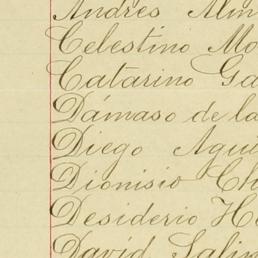 Andres Alm
Celestino Mo
Catarino Ga
Dámaso de la
Diego Agui
Dionisio Ch
Desiderio He
David Salin